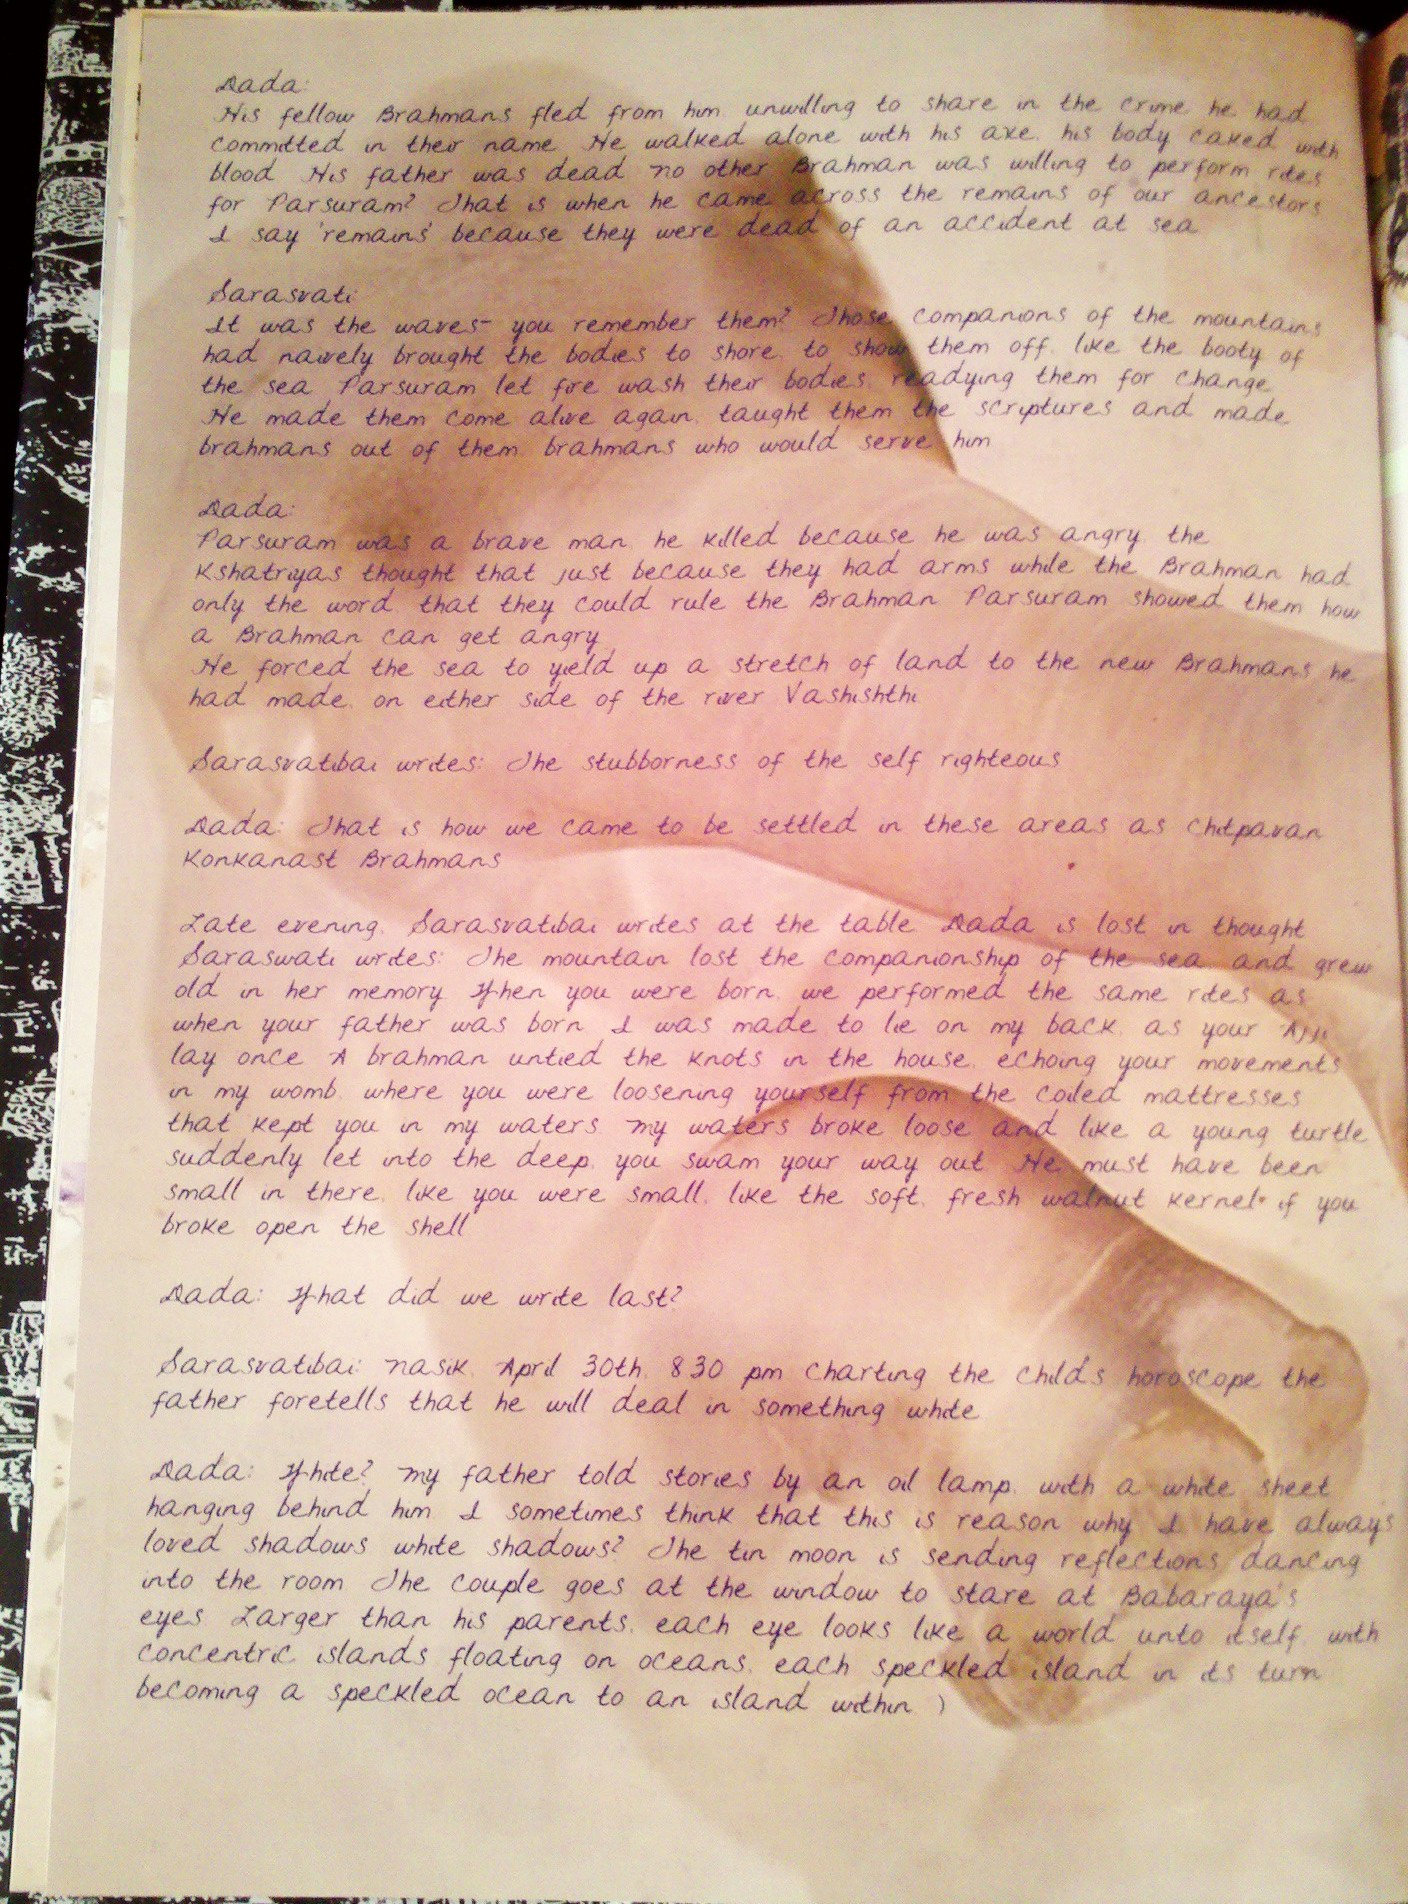 Dada:
His fellow Brahmans fled from him unwilling to share in the crime he had
committed in their name He walked alone with his axe, his body caked with
blood His father was dead no other Brahman was willing to perform rites
for Parsuram? That is when he came across the remains of our ancestors
I say 'remains' because they were dead of an accident at sea
Sarasvati:
It was the waves- you remember them? Those companions of the mountains
had naively brought the bodies to shore, to show them off, like the booty of
the sea Parsuram let fire wash their bodies, readying them for change
He made them come alive again, taught them the scriptures and made
brahmans out of them, brahmans who would serve him
Dada:
Parsuram was a brave man, he killed because he was angry, the
Kshatriyas thought that just because they had arms while the Brahman had
only the word, that they could rule the Brahman Parsuram showed them how
a Brahman can get angry,
He forced the sea to yield up a stretch of land to the new Brahmans he
had made, on either side of the river Vashishthi
Sarasvatibai writes: The stubborness of the self righteous
Dada: That is how we came to be settled in these areas as Chitpavan
Konkanast Brahmans
Late evening, Sarasvatibai writes at the table Dada is lost in thought
Saraswati writes: The mountain lost the companionship of the sea, and grew
old in her memory When you were born, we performed the same rites as
when your father was born I was made to lie on my back, as your Ajji
lay once A brahman untied the knots in the house, echoing your movements
in my womb, where you were loosening yourself from the coiled mattresses
that kept you in my waters my waters broke loose and like a young turtle
suddenly let into the deep, you swam your way out He must have been
small in there, like you were small, like the soft, fresh walnut kernel- if you
broke open the shell
Dada: What did we write last?
Sarasvatibai: Nasik, April 30th, 8 30 pm Charting the child's horoscope the
father foretells that he will deal in something white
Dada: White? My father told stories by an oil lamp, with a white sheet
hanging behind him I sometimes think that this is reason why I have always
loved shadows white shadows? The tin moon is sending reflections dancing
into the room The couple goes at the window to stare at Babaraya's
eyes Larger than his parents, each eye looks like a world unto itself, with
concentric islands floating on oceans, each speckled island in its turn
becoming a speckled ocean to an island within )